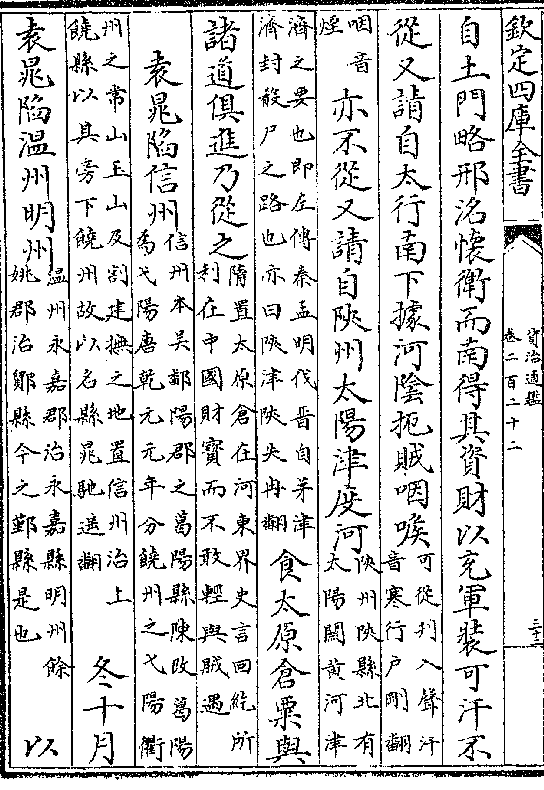 欽定四庫全書
資治通鑑
卷二百二十二
自土門略邢洺懷衛而南得其資財以充軍裝可汗不
從又請自太行南下據河陰扼賊咽喉
可從刋入聲汗
音寒行户剛翻
咽音
煙
亦不從又請自陜州太陽津度河
陜州陜縣北有
太陽關黄河津
濟之要也即左傳秦孟明伐晉自茅津
濟封殽尸之路也亦曰陜津陜失冉翻
食太原倉粟與
諸道俱進乃從之
隋置太原倉在河東界史言回紇所
利在中國財寶而不敢輕與賊遇
袁晁陷信州
信州本吳鄱陽郡之葛陽縣陳改葛陽
為弋陽唐乾元元年分饒州之弋陽衢
州之常山玉山及割建撫之地置信州治上
饒縣以其旁下饒州故以名縣晁馳遥翻
冬十月
袁晁陷温州明州
温州永嘉郡治永嘉縣明州餘
姚郡治鄮縣今之鄞縣是也
以